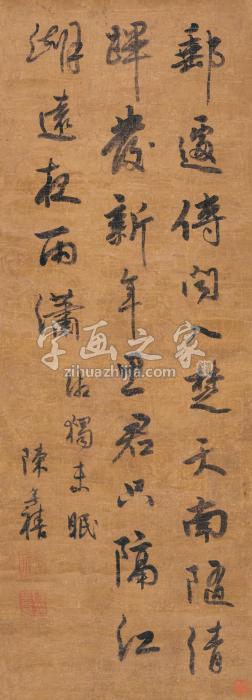 郵遽傳聞入楚天南隨清
蹕發新年思君只隔江
湖遠夜雨瀟湘獨未眠
陳奕禧
字画之家
zihuazhijia.com